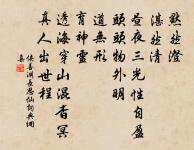 默然澄
湛然清
晝夜三光性自盈
頭頭物外明
道無形
育神靈
透海穿山混杳冥
真人出世程
侯善淵長思仙詞典網
集